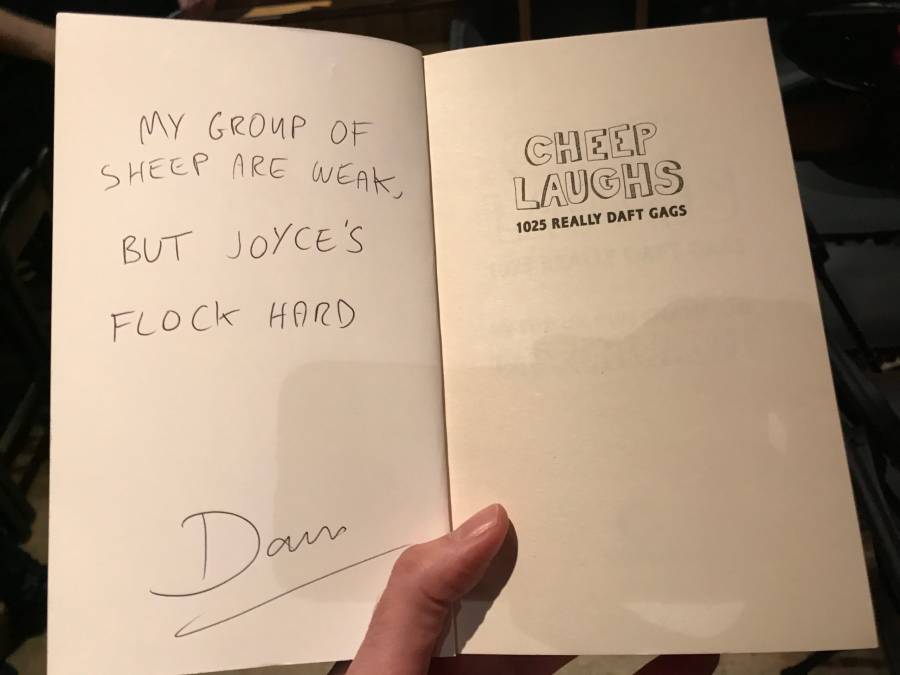 MY GROUP OF
SHEEP ARE WEAK,
BUT JOYCE'S
FLOCK HARD
Dan
CHEEP
LAUGHS
1025 REALLY DAFT GAGS